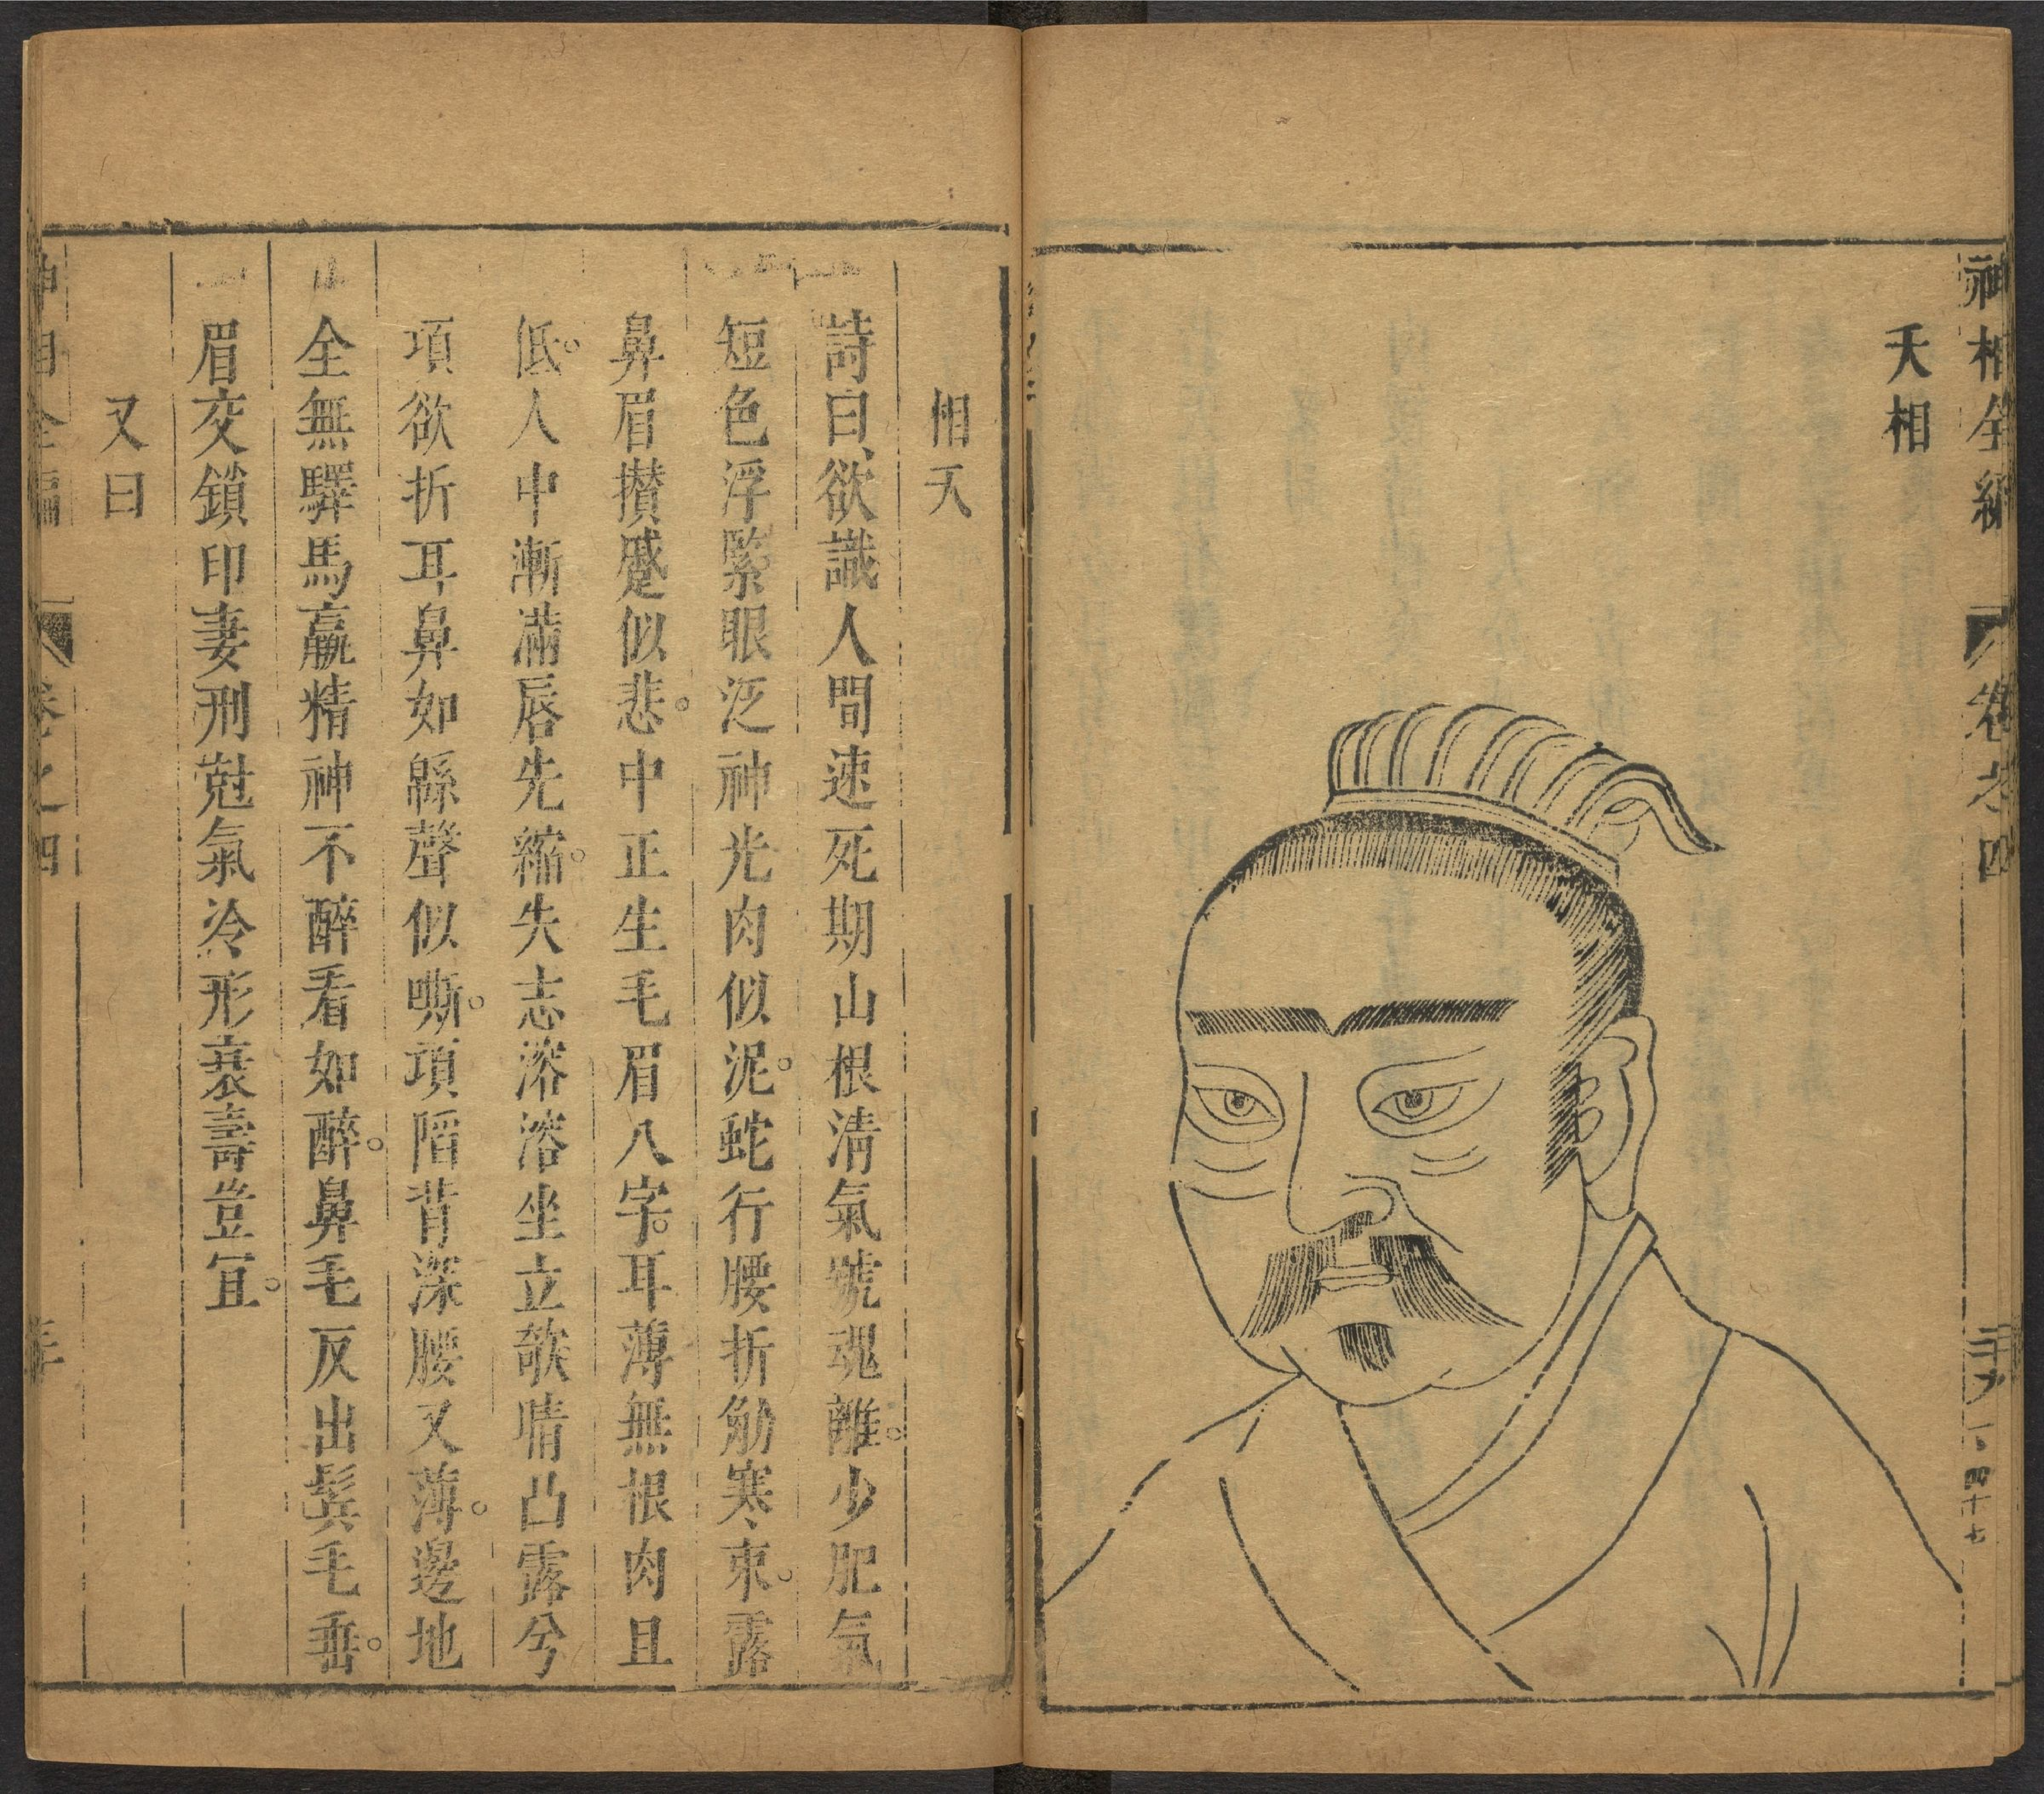 神相全編
卷之四
四十七
夭相
相夭
詩曰、欲識人間速死期山根清氣號魂離。少肥氣
短色浮緊眼泛神光肉似泥。蛇行腰折觔寒束。露
鼻眉攅蹙似悲。中正生毛眉八字。耳薄無根肉且
低。人中漸滿唇先縮。失志溶溶坐立欹睛凸露兮
項欲折耳鼻如緜聲似嘶。項陷背深腰又薄。邊地
全無驛馬羸精神不醉看如醉。鼻毛反出鬂毛垂。
眉交鎖印妻刑尅氣冷形衰壽豈冝。
又曰
神相全編
卷之四